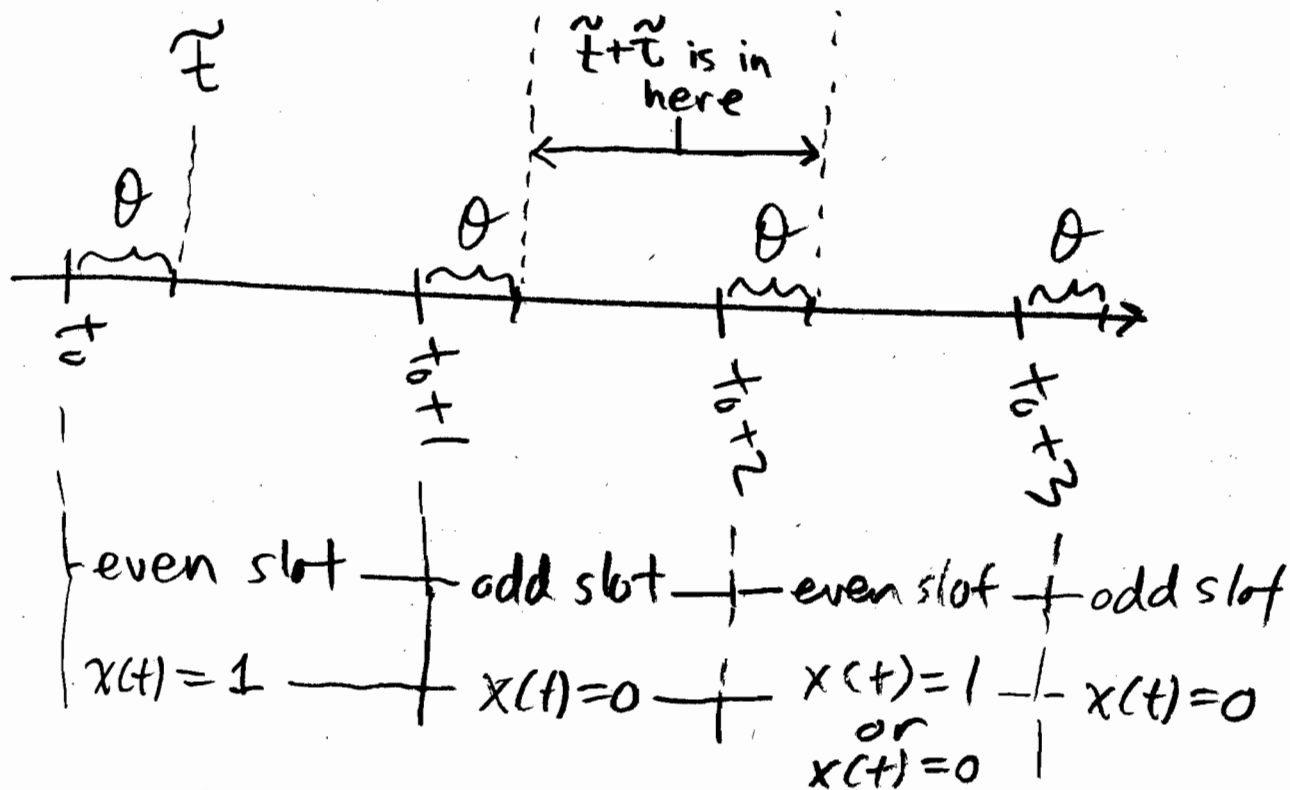 t̃
t̃+τ̃ is in
here
θ
θ
θ
θ
t₀
t₀+1
t₀+2
t₀+3
even slot
odd slot
even slot
odd slot
x(t)=1
x(t)=0
x(t)=1
or
x(t)=0
x(t)=0